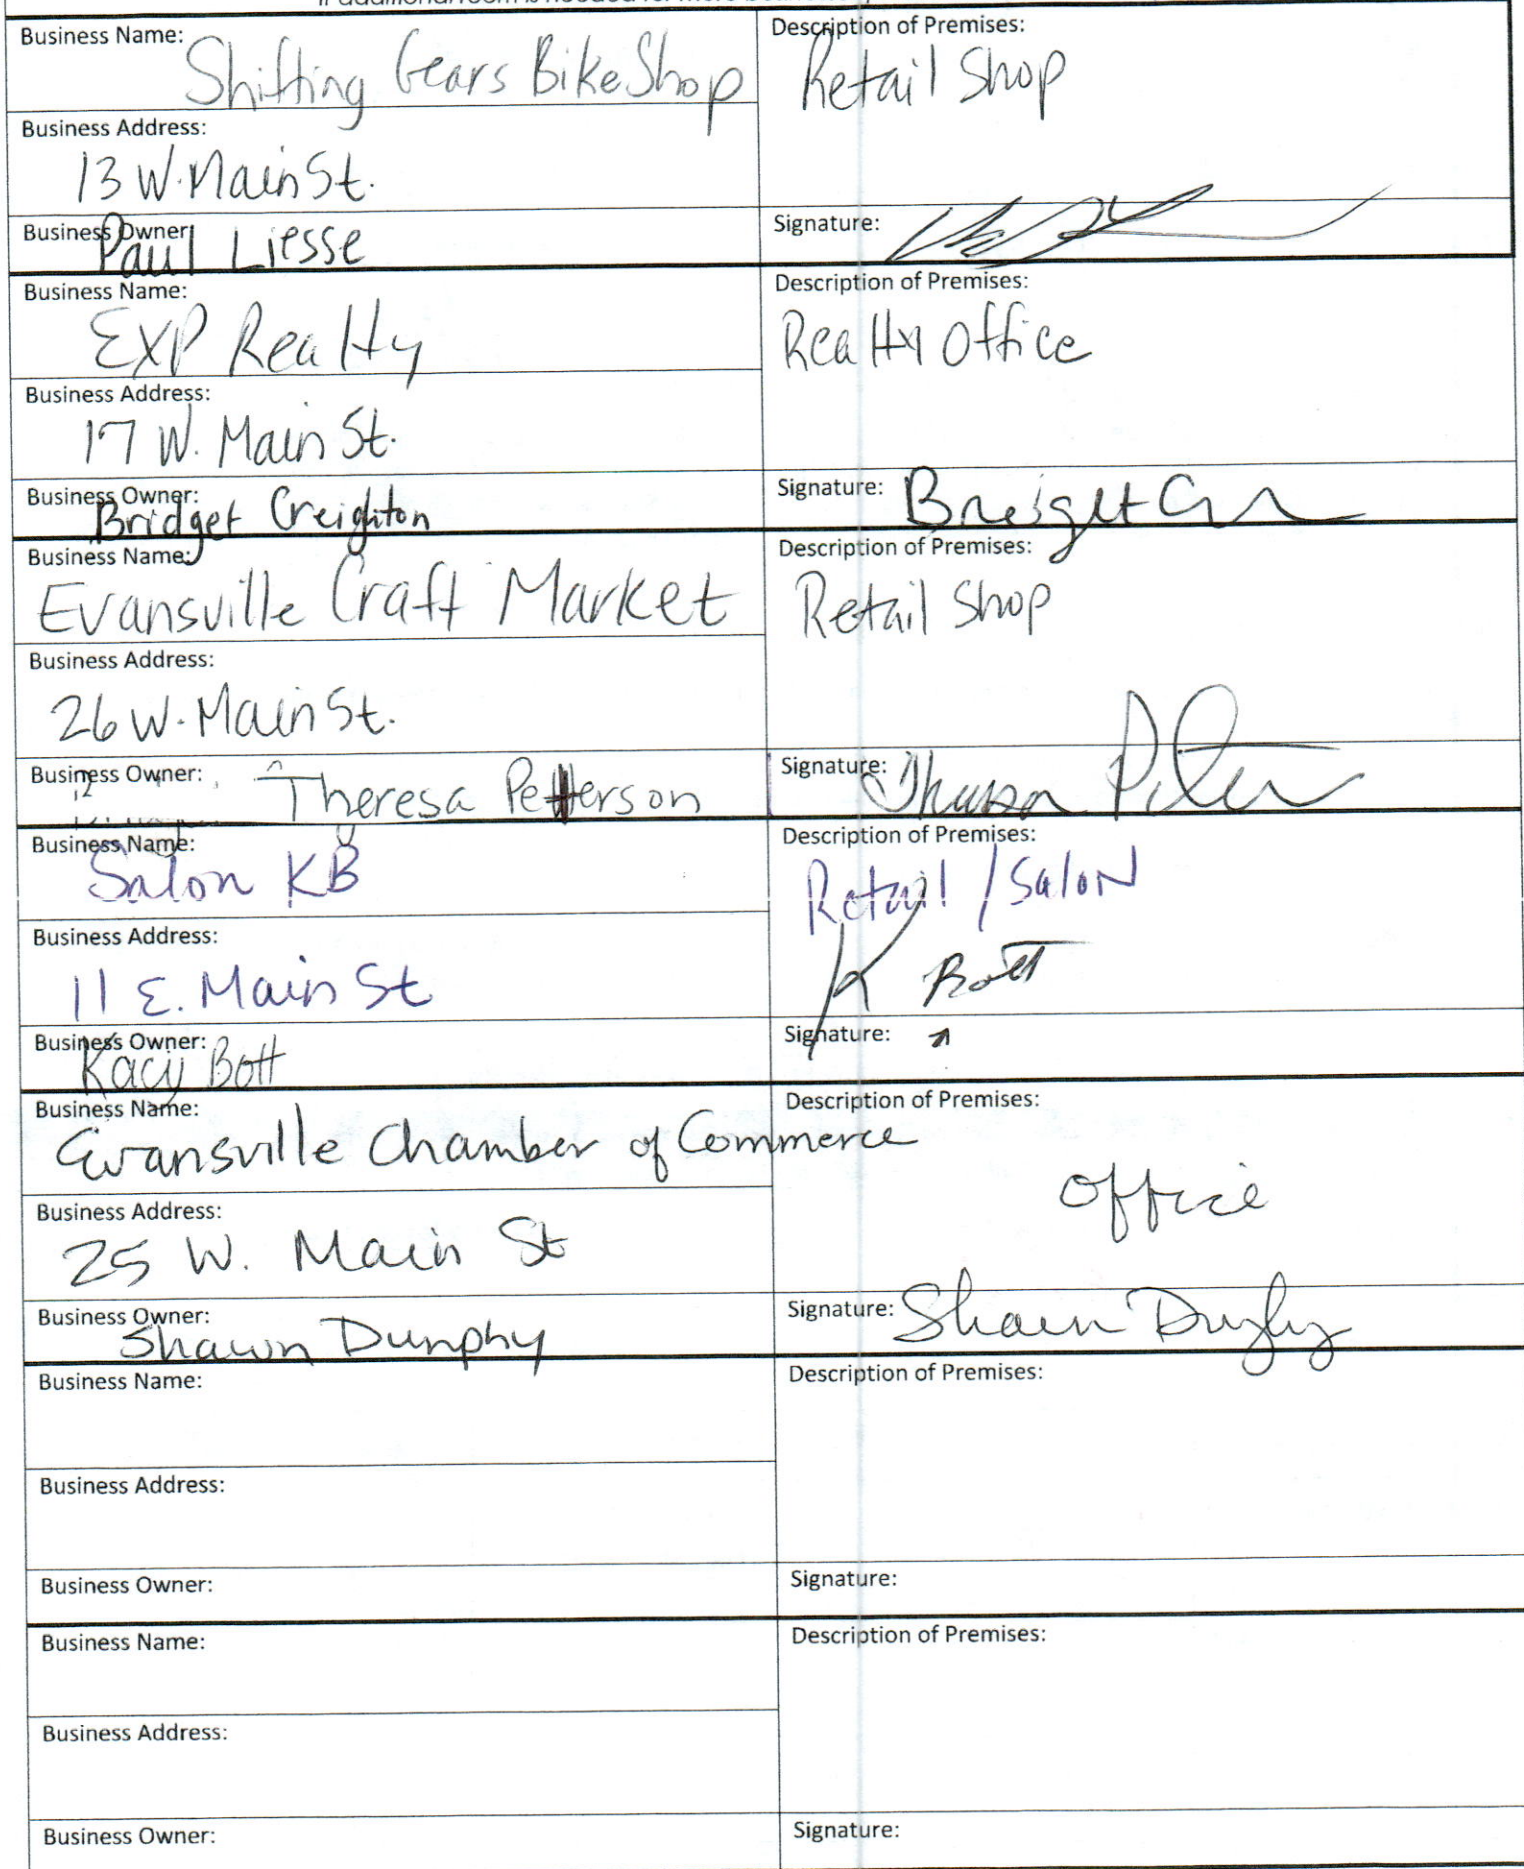 Business Name: Shifting Gears Bike Shop
Description of Premises:
Retail Shop
Business Address:
13 W. Main St.
Business Owner: Paul Liesse
Signature:
Business Name:
EXP Realty
Description of Premises:
Realty Office
Business Address:
17 W. Main St.
Business Owner:
Bridget Creighton
Signature: Bridget
Business Name:
Evansville Craft Market
Description of Premises:
Retail Shop
Business Address:
26 W. Main St.
Business Owner: Theresa Petterson
Signature: Theresa
Business Name:
Salon KB
Description of Premises:
Retail / Salon
Business Address:
11 E. Main St
K Bott
Business Owner:
Kacy Bott
Signature:
Business Name:
Evansville Chamber of Commerce
Description of Premises:
Office
Business Address:
25 W. Main St
Business Owner:
Shawn Dunphy
Signature: Shawn Dunphy
Business Name:
Description of Premises:
Business Address:
Business Owner:
Signature:
Business Name:
Description of Premises:
Business Address:
Business Owner:
Signature: